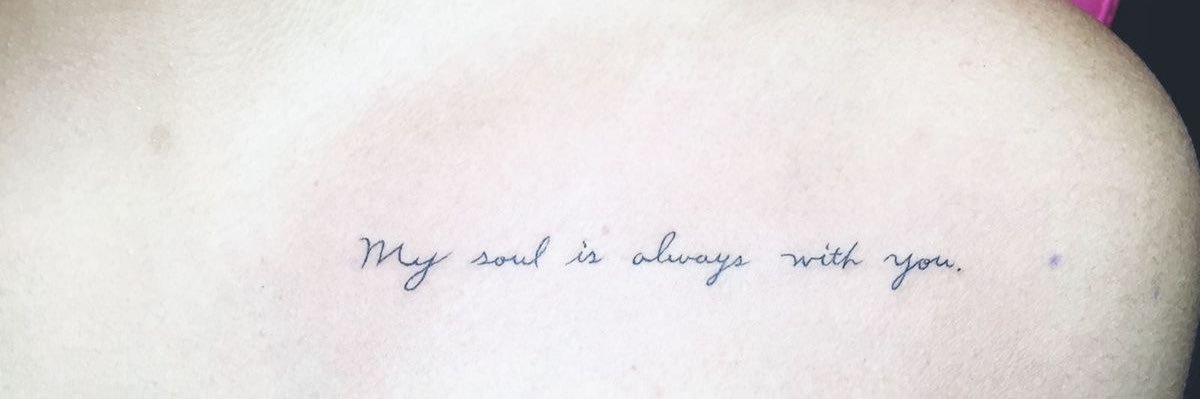 My soul is always with you.